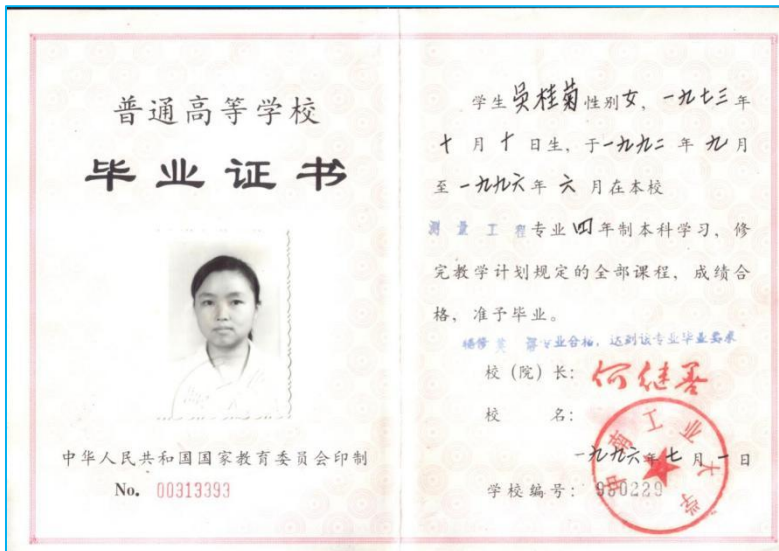 普通高等学校
毕业证书
中华人民共和国国家教育委员会印制
No. 00313393
学生吴桂菊性别女，一九七三年
十月十日生，于一九九二年九月
至一九九六年六月在本校
测量工程专业四年制本科学习，修
完教学计划规定的全部课程，成绩合
格，准予毕业。
专业合格，达到该专业毕业要求
校（院）长：何继善
校名：
中南工业大学
一九九六年七月一日
学校编号：